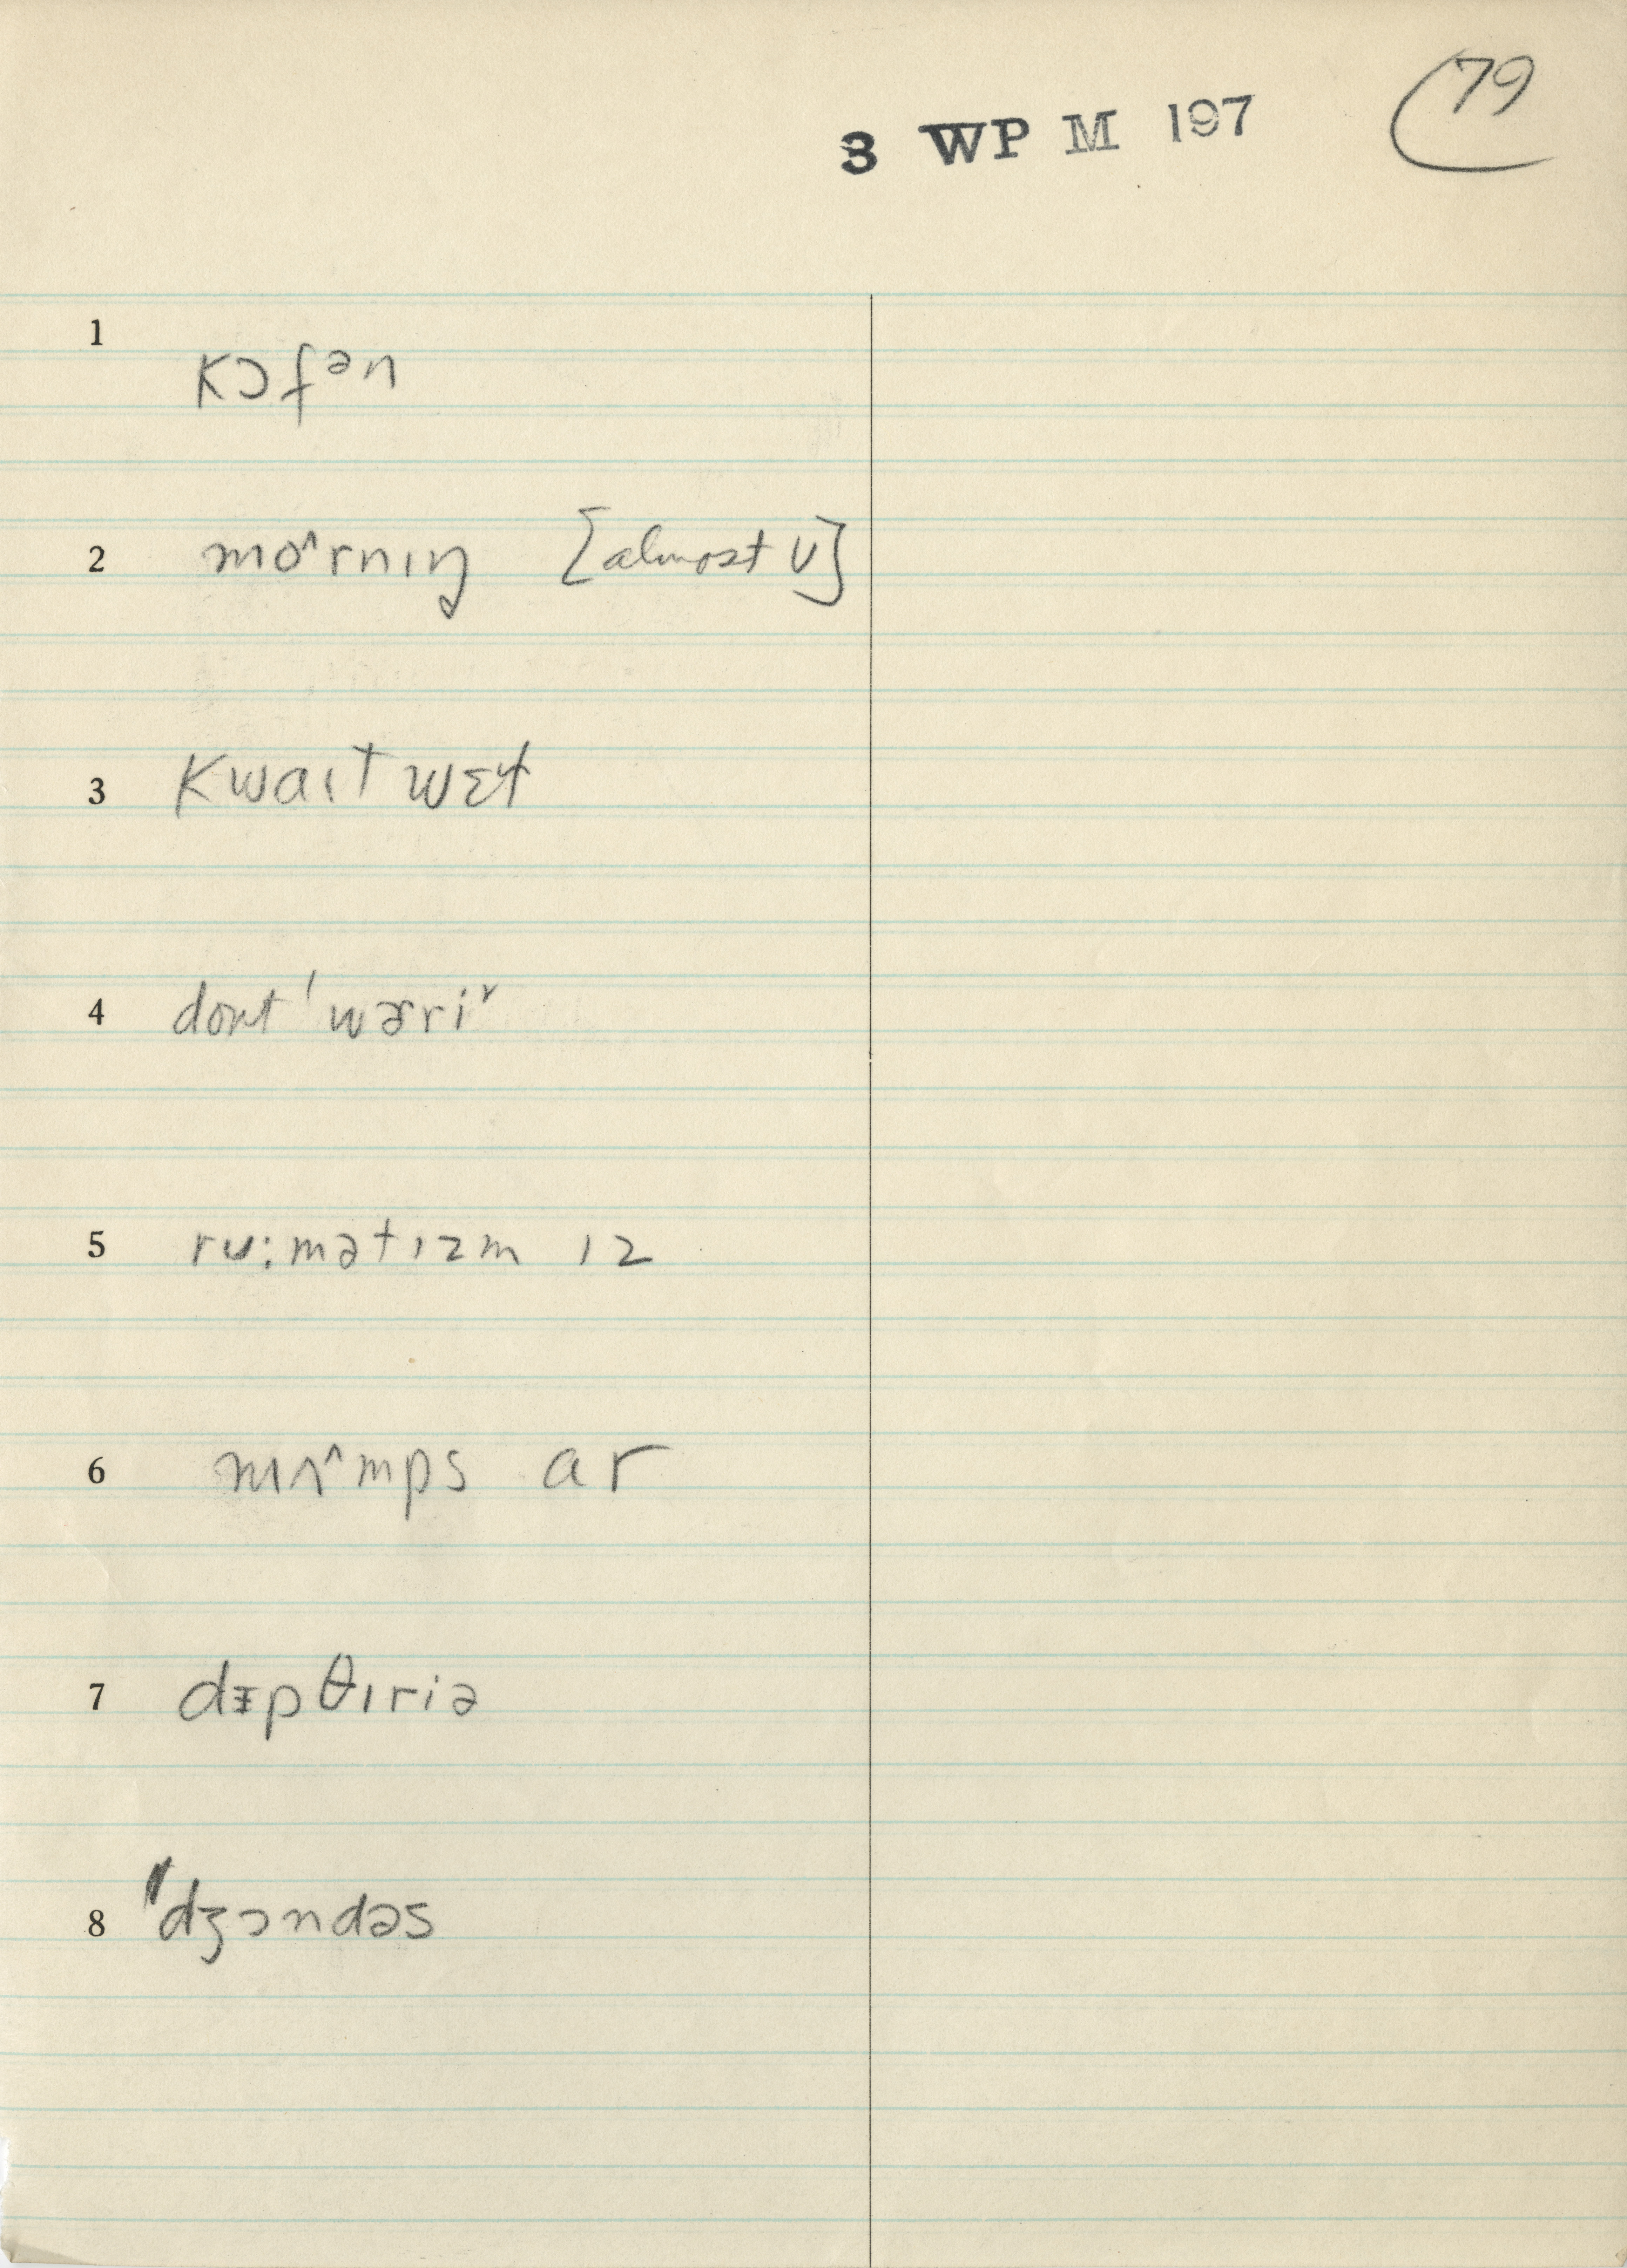 3 WP M 197 79
1 kɔfᵊn
2 mo˄rnɪŋ [almost ʊ]
3 kwaɪt wɛt
4 dont ˈwɚri˅
5 ru:mətɪzm ɪz
6 mʌ˄mps ar
7 dɪpθɪriə
8 "dʒɔndəs